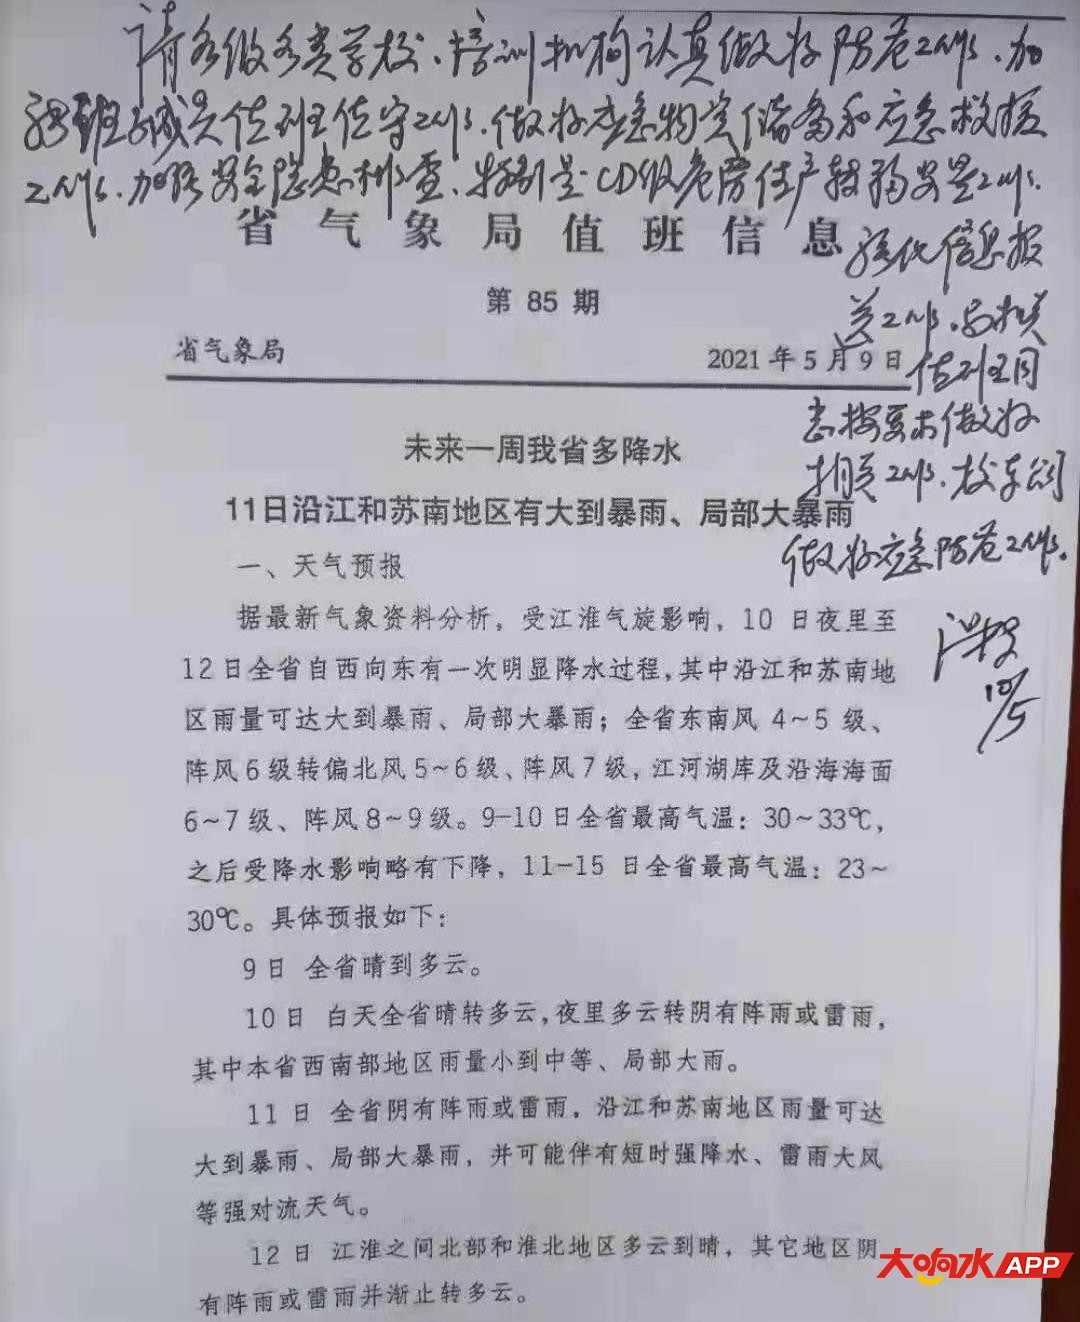 请各级各类学校、培训机构认真做好防范工作、加
强班子成员值班值守工作、做好应急物资储备和应急救援
工作、加强安全隐患排查、特别是CD级危房住户转移安置工作.
强化信息报
送工作、局相关
值班同
志按要求做好
相关工作、校车公司
做好应急防范工作.
10/5
省气象局值班信息
第 85 期
省气象局 2021 年 5 月 9 日
未来一周我省多降水
11日沿江和苏南地区有大到暴雨、局部大暴雨
一、天气预报
据最新气象资料分析，受江淮气旋影响，10 日夜里至
12日全省自西向东有一次明显降水过程，其中沿江和苏南地
区雨量可达大到暴雨、局部大暴雨；全省东南风 4～5 级、
阵风6级转偏北风5～6级、阵风7级，江河湖库及沿海海面
6～7 级、阵风8～9级。9-10日全省最高气温：30～33℃，
之后受降水影响略有下降，11-15 日全省最高气温：23～
30℃。具体预报如下：
9日 全省晴到多云。
10日 白天全省晴转多云，夜里多云转阴有阵雨或雷雨，
其中本省西南部地区雨量小到中等、局部大雨。
11 日 全省阴有阵雨或雷雨，沿江和苏南地区雨量可达
大到暴雨、局部大暴雨，并可能伴有短时强降水、雷雨大风
等强对流天气。
12 日 江淮之间北部和淮北地区多云到晴，其它地区阴
有阵雨或雷雨并渐止转多云。
大响水APP